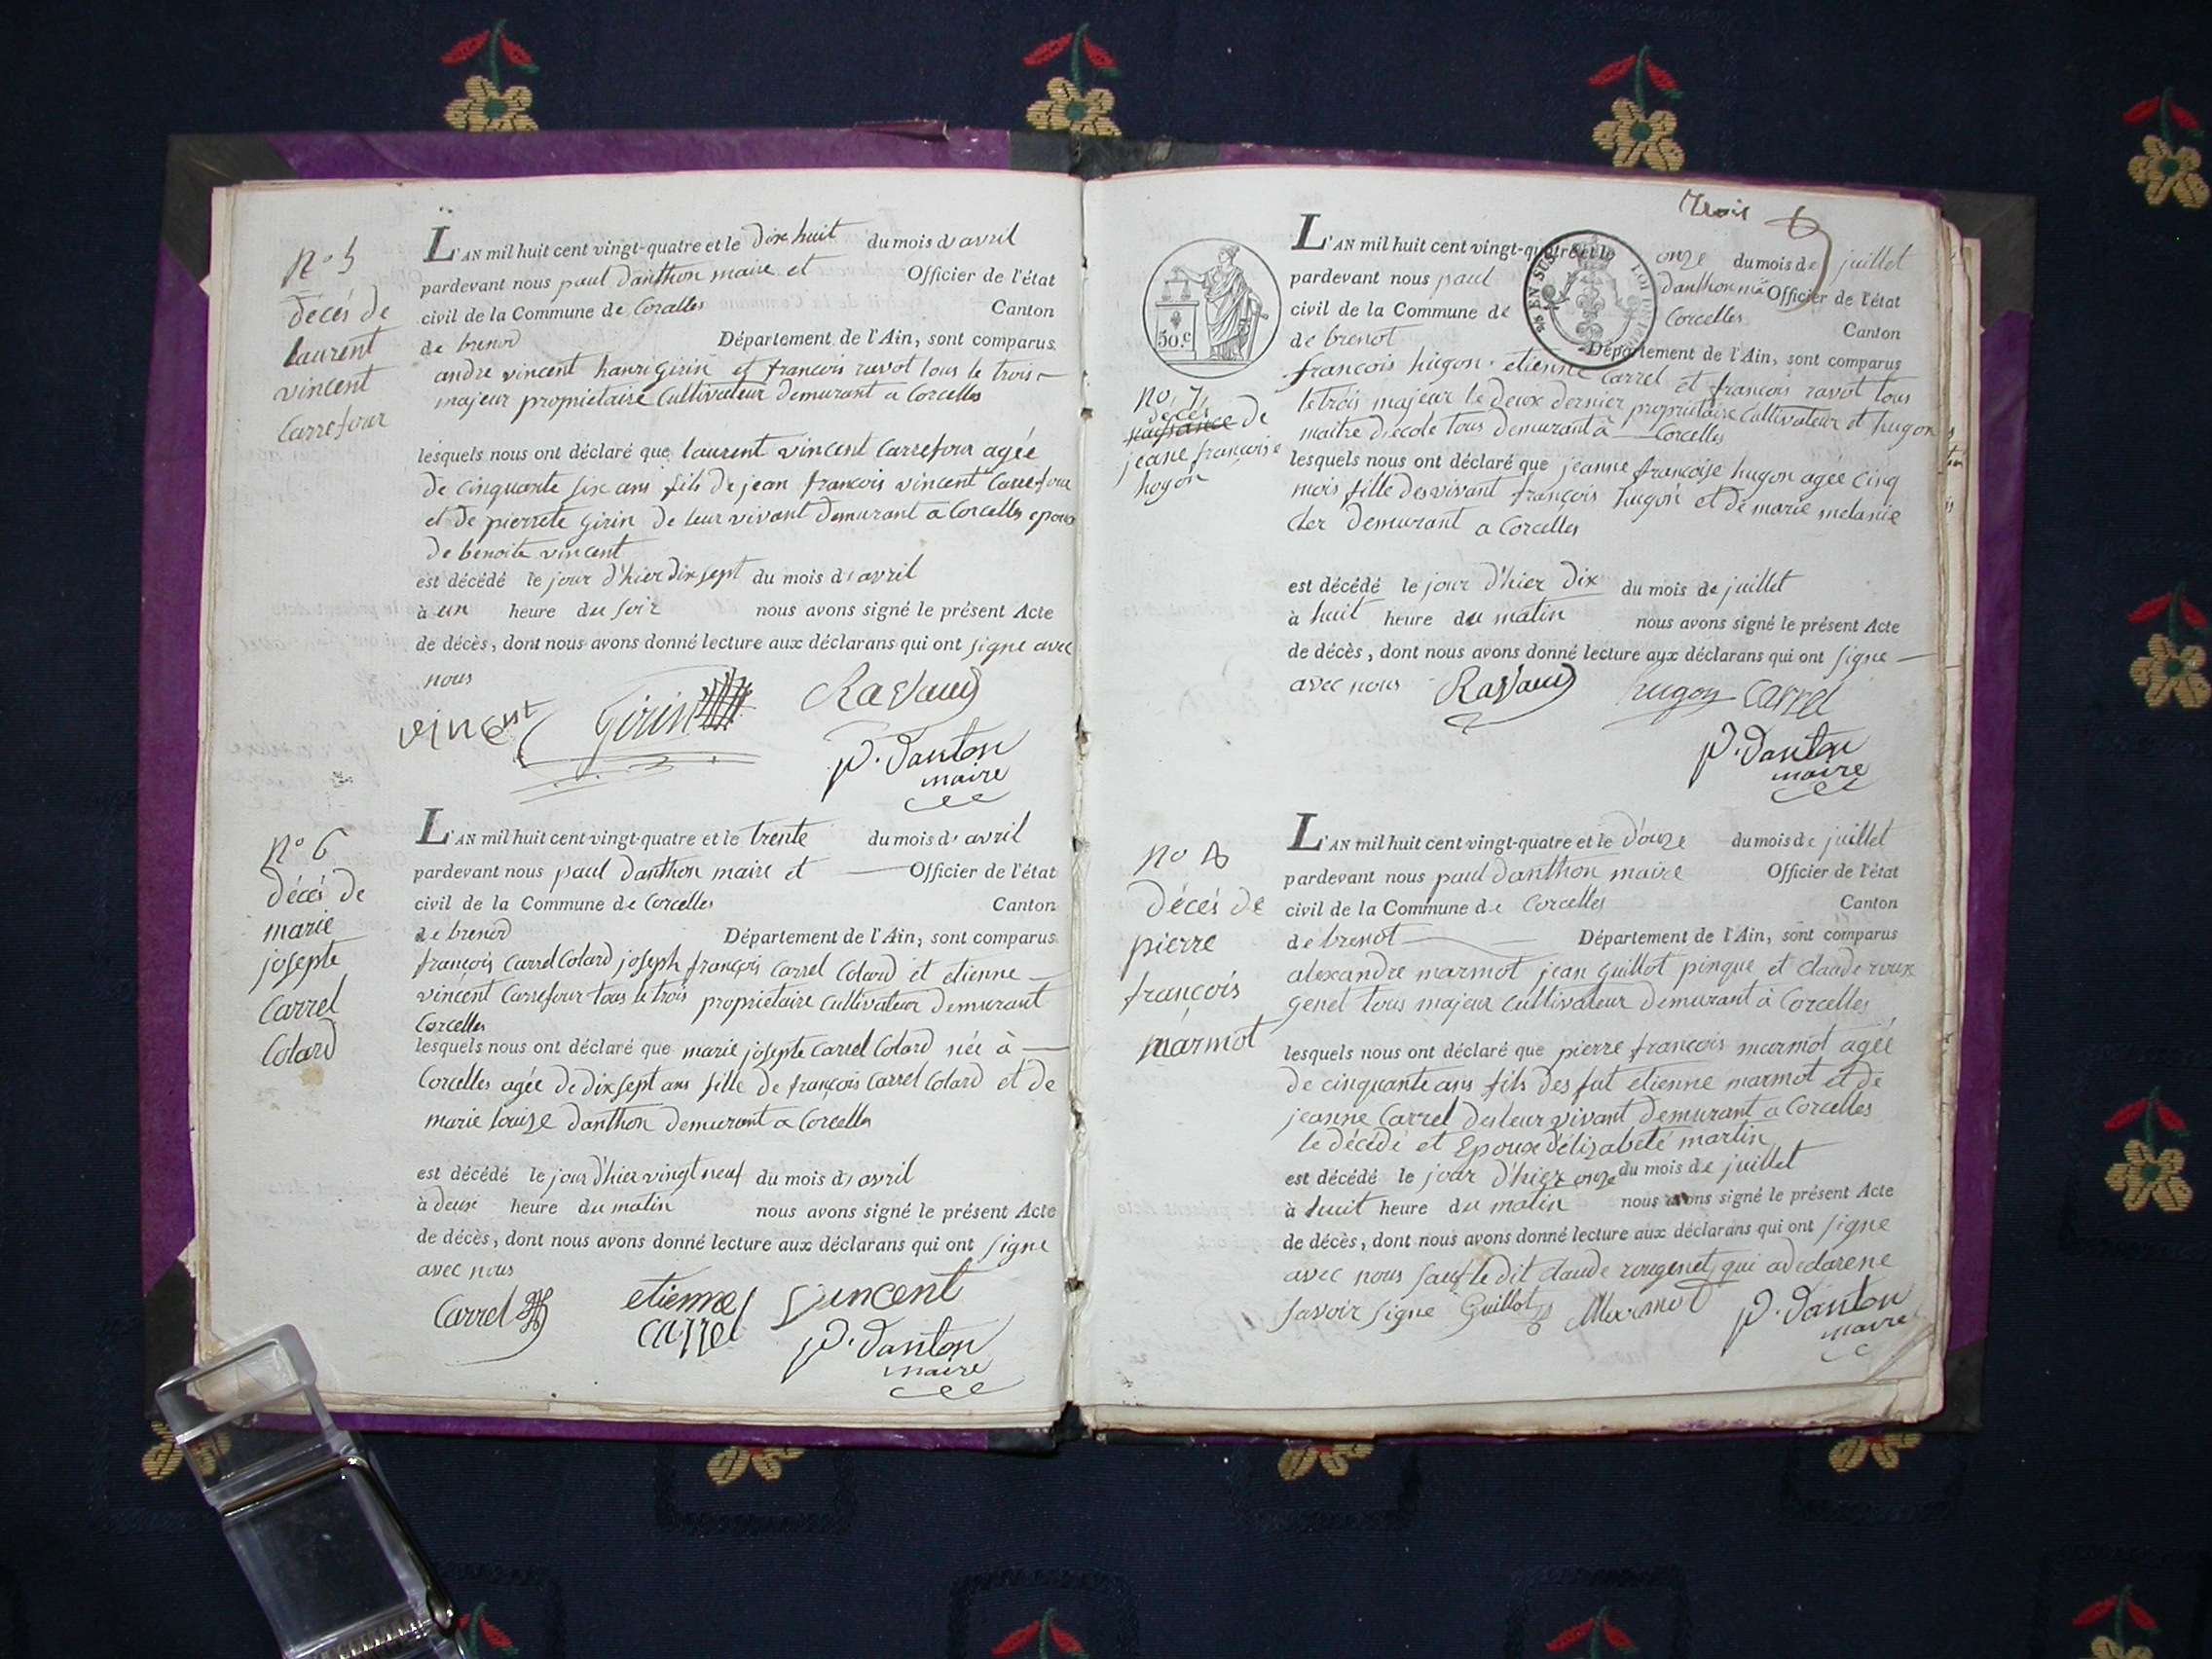 n° 5
decés de
laurent
vincent
Carrefour
L'AN mil huit cent vingt-quatre et le dix huit du mois d'avril
pardevant nous paul danthon maire et Officier de l'état
civil de la Commune de Coralles Canton
de brenod Département de l'Ain, sont comparus
andre vincent hanri girin et francois ravot tous le trois
majeur proprietaire Cultivateur demurant a Corcelles
lesquels nous ont déclaré que laurent vincent Carrefour agée
de cinquante six ans fils de jean francois vincent Carrefour
et de pierrete girin de leur vivant demurant a Corcelles epoux
de benoite vincent
est décédé le jour d'hier dix sept du mois d'avril
à un heure du soir nous avons signé le présent Acte
de décès, dont nous avons donné lecture aux déclarans qui ont signe avec
nous
vincent Girin
P. Danton
maire
n° 6
décés de
marie
josepte
Carrel
Cotard
L'AN mil huit cent vingt-quatre et le trente du mois d'avril
pardevant nous paul danthon maire et Officier de l'état
civil de la Commune de Corcelles Canton
de brenod Département de l'Ain, sont comparus
françois Carrel Cotard joseph françois Carrel Cotard et etienne
vincent Carrefour tous le trois proprietaire Cultivateur demurant
Corcelles
lesquels nous ont déclaré que marie josepte Carrel Cotard née à
Corcelles agée de dix sept ans fille de françois Carrel Cotard et de
marie louise danthon demurant a Corcelles
est décédé le jour d'hier vingt neuf du mois d'avril
à deux heure du matin nous avons signé le présent Acte
de décès, dont nous avons donné lecture aux déclarans qui ont signe
avec nous
Carrel etienne vincent
carrel P. Danton
maire
trois
50 c
EN SUS
no 7
décés
naissance de
jeane françoise
hugon
L'AN mil huit cent vingt-quatre et le onze du mois de juillet
pardevant nous paul danthon Officier de l'état
civil de la Commune de Corcelles Canton
de brenot Département de l'Ain, sont comparus
françois hugon etienne Carrel et françois ravot tous
le trois majeur le deux dernier proprietaire Cultivateur et hugon
maitre d'ecole tous demurant à Corcelles
lesquels nous ont déclaré que jeanne françoise hugon agée cinq
mois fille des vivant françois hugon et de marie melanie
Cler demurant a Corcelles
est décédé le jour d'hier dix du mois de juillet
à huit heure du matin nous avons signé le présent Acte
de décès, dont nous avons donné lecture aux déclarans qui ont signe
avec nous hugon Carrel
P. Danton
maire
no 8
décés de
pierre
françois
marmot
L'AN mil huit cent vingt-quatre et le douze du mois de juillet
pardevant nous paul danthon maire Officier de l'état
civil de la Commune de Corcelles Canton
de brenot Département de l'Ain, sont comparus
alexandre marmot jean guillot pinque et claude roux
genet tous majeur Cultivateur demurant à Corcelles
lesquels nous ont déclaré que pierre francois marmot agée
de cinquante ans fils des fut etienne marmot et de
jeanne Carrel des leur vivant demurant a Corcelles
le décédé et Epoux d'élizabete martin
est décédé le jour d'hier onze du mois de juillet
à huit heure du matin nous avons signé le présent Acte
de décès, dont nous avons donné lecture aux déclarans qui ont signe
avec nous sauf le dit claude rougenet qui a declarene
savoir signe Guillot Marmot P. Danton
maire